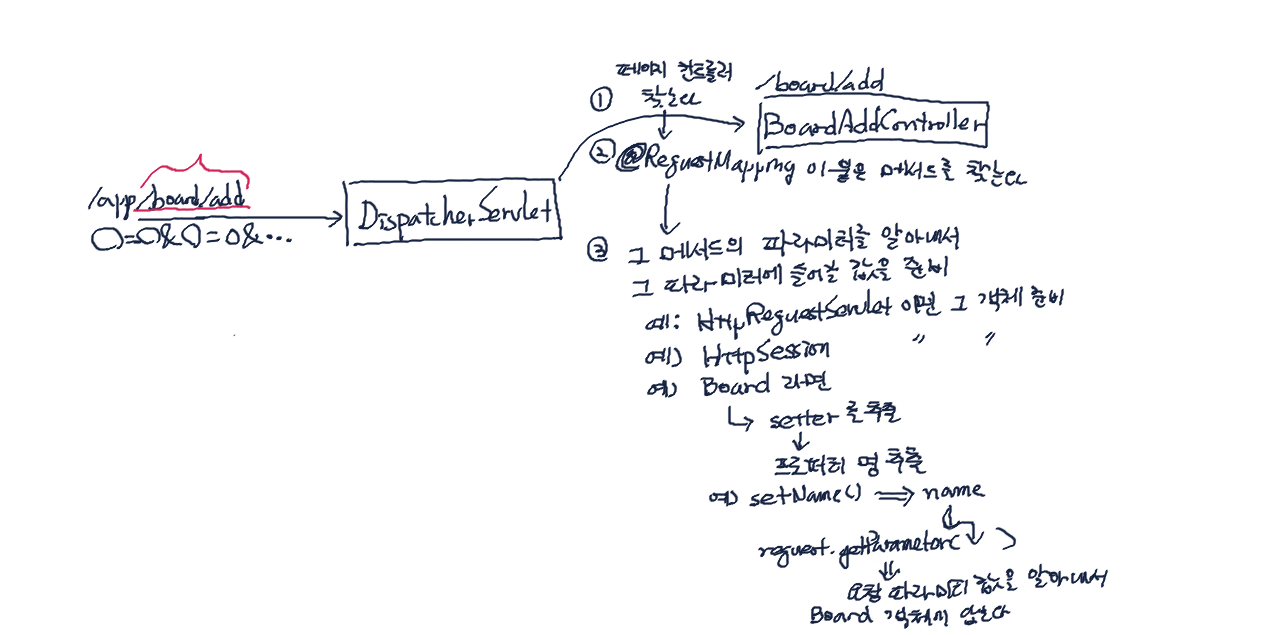 /app/board/add
○=○&○=○&...
DispatcherServlet
① 페이지 컨트롤러
찾는다
/board/add
BoardAddController
② @RequestMapping 이 붙은 메서드를 찾는다
③ 그 메서드의 파라미터를 알아내서
그 파라미터에 들어갈 값을 준비
예: HttpRequestServlet 이면 그 객체 준비
예) HttpSession 〃 〃
예) Board 라면
setter 를 추출
프로퍼티 명 추출
예) setName() ⇒ name
request.getParameter( )
요청 파라미터 값을 알아내서
Board 객체에 담는다